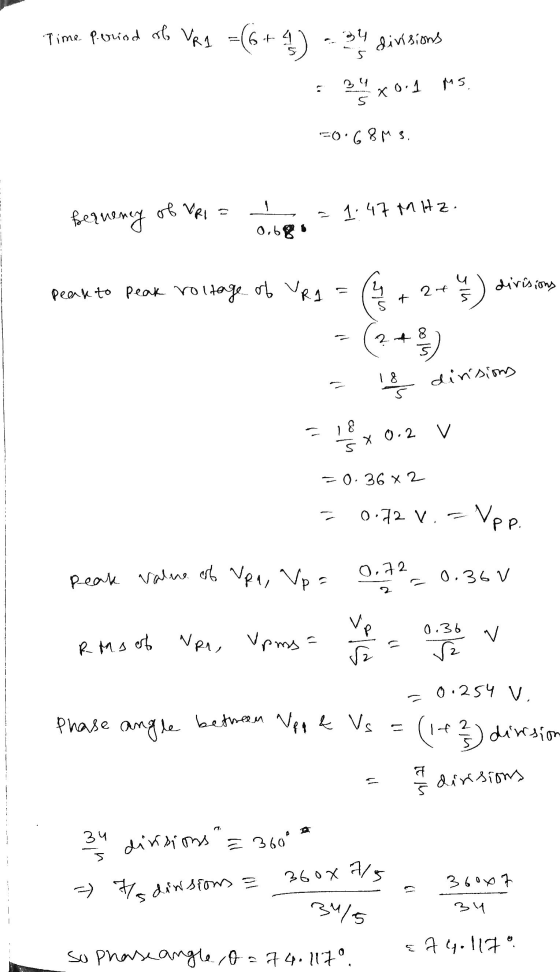 Time Period of VR1 = (6 + 4/5) = 34/5 divisions
= 34/5 x 0.1 MS.
= 0.68 M S.
frequency of VR1 = 1/0.68 = 1.47 MHZ.
peak to peak voltage of VR1 = (4/5 + 2 + 4/5) divisions
= (2 + 8/5)
= 18/5 divisions
= 18/5 x 0.2 V
= 0.36 x 2
= 0.72 V. = VPP.
peak value of VR1, Vp = 0.72/2 = 0.36 V
RMS of VR1, Vrms = Vp/√2 = 0.36/√2 V
= 0.254 V.
Phase angle between VR1 & Vs = (1 + 2/5) division
= 7/5 divisions
34/5 divisions ≡ 360°
⇒ 7/5 divisions ≡ 360 x 7/5 / 34/5 = 360x7/34
= 74.117°.
so phase angle, θ = 74.117°.